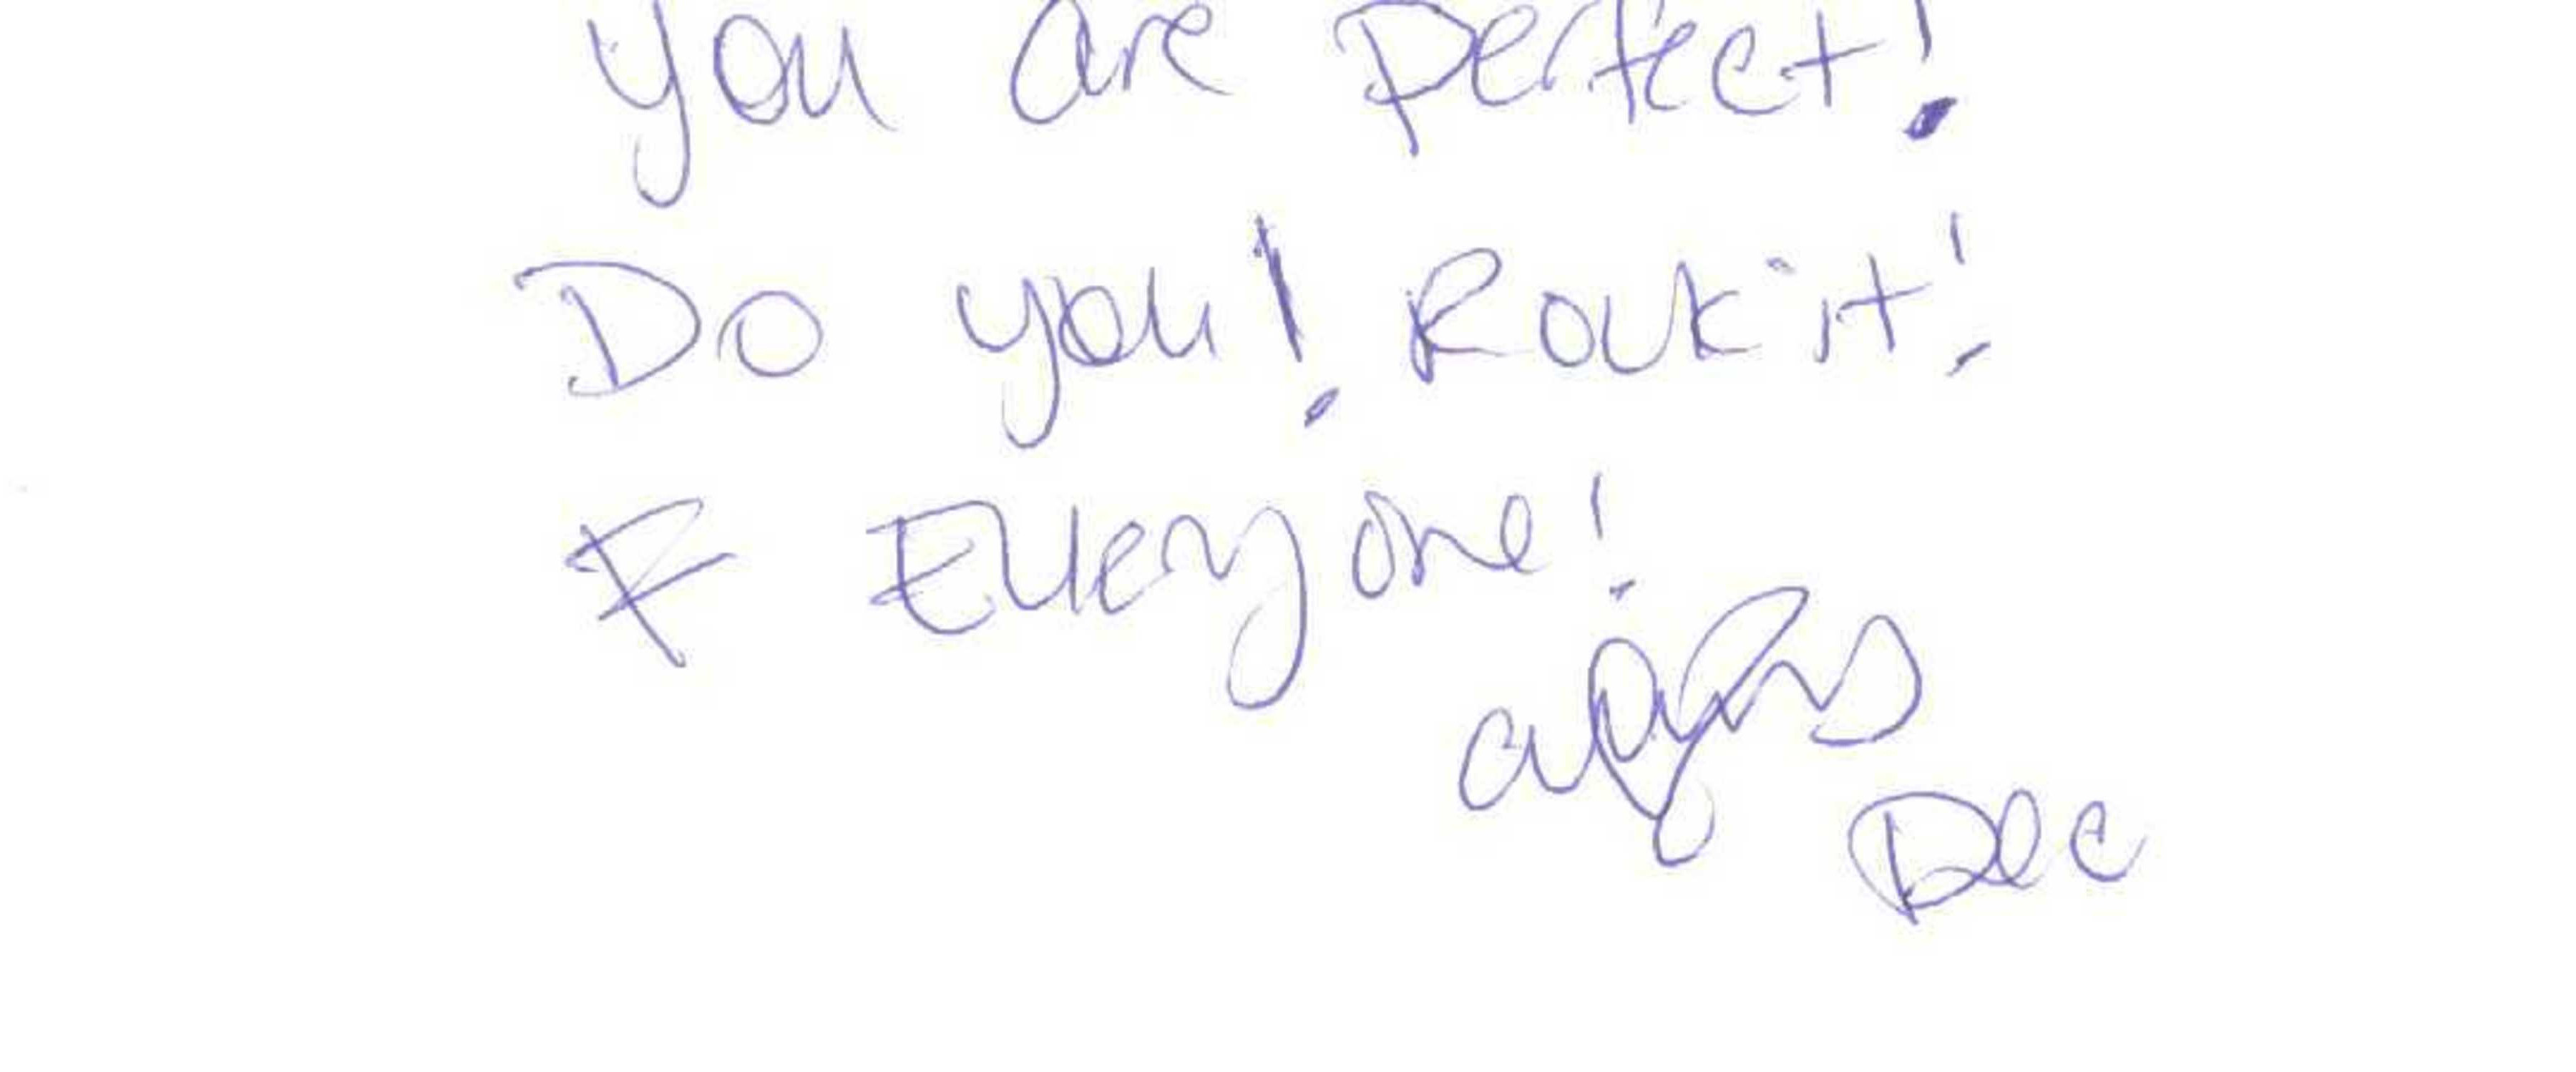 you are perfect!
Do you! Rock it!
F Everyone!
Dec